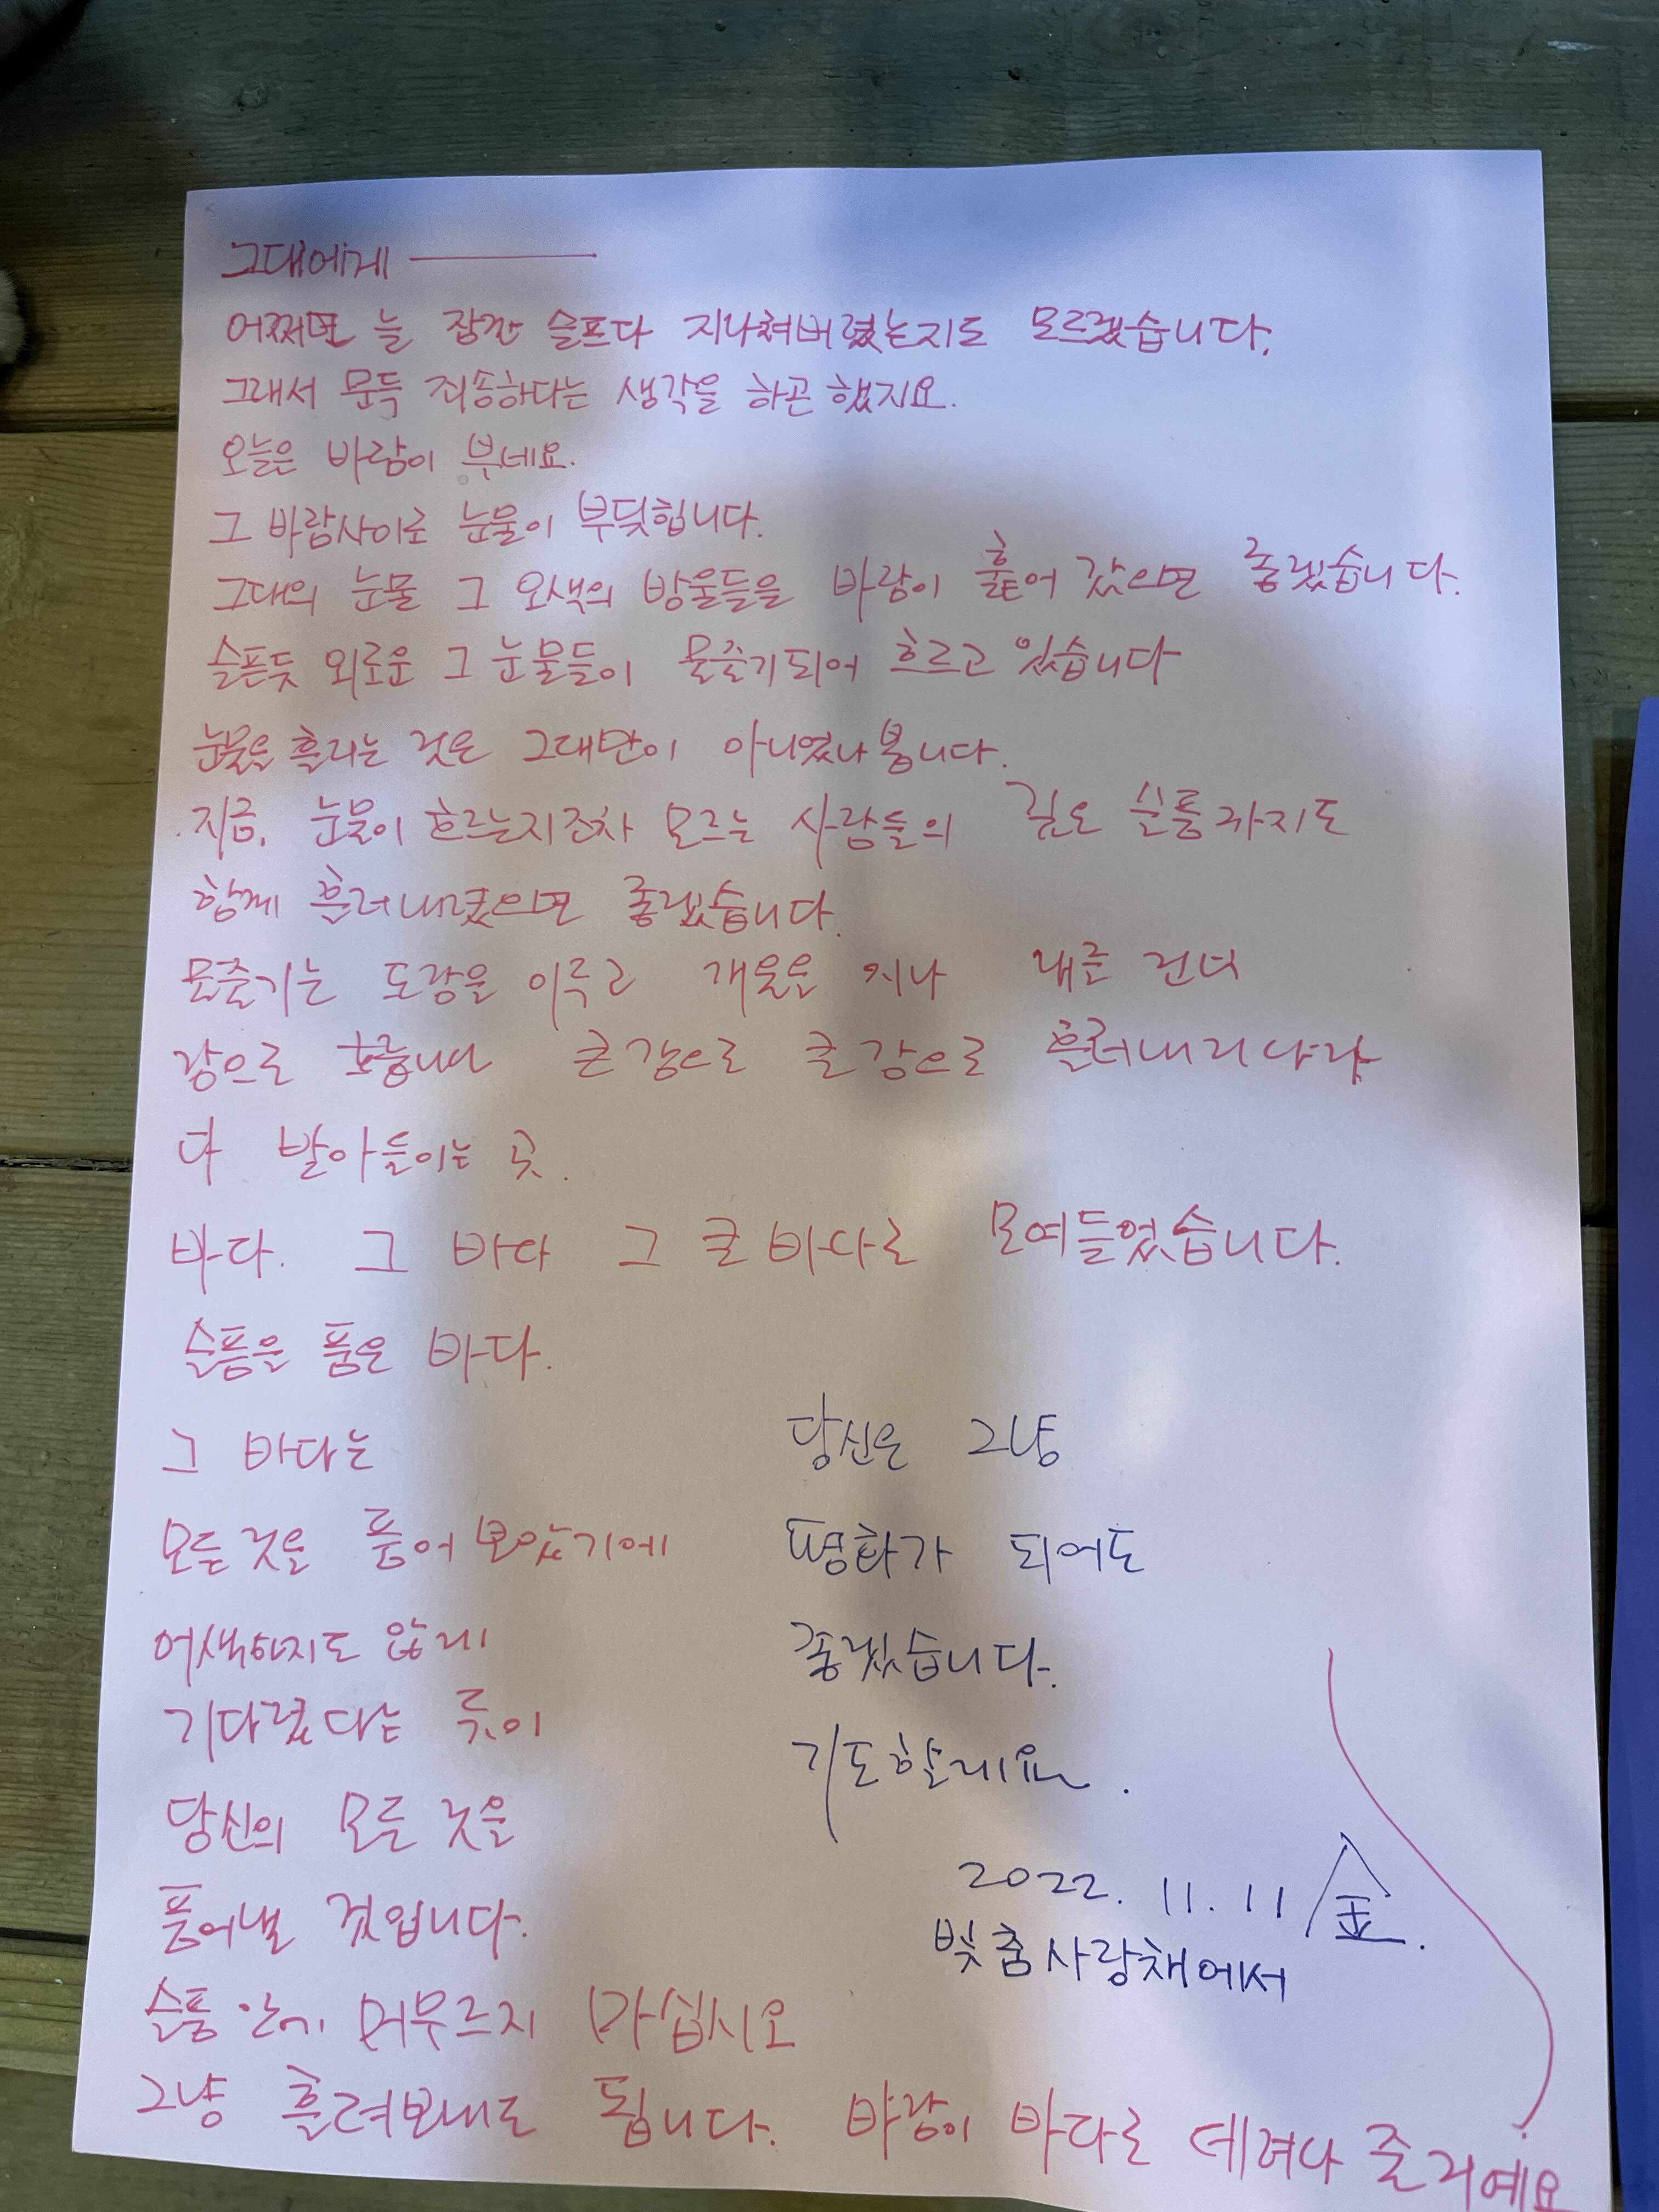 그대에게
어쩌면 늘 잠깐 슬프다 지나쳐버렸는지도 모르겠습니다.
그래서 문득 죄송하다는 생각을 하곤 했지요.
오늘은 바람이 부네요.
그 바람사이로 눈물이 부딪힙니다.
그대의 눈물 그 오색의 방울들을 바람이 훑어 갔으면 좋겠습니다.
슬픈듯 외로운 그 눈물들이 물줄기되어 흐르고 있습니다
눈물을 흘리는 것은 그대만이 아니였나봅니다.
지금, 눈물이 흐르는지조차 모르는 사람들의 깊은 슬픔까지도
함께 흘러내렸으면 좋겠습니다.
물줄기는 도랑을 이루고 개울을 지나 내를 건너
강으로 흐릅니다 큰강으로 큰강으로 흘러내리다가
다 받아들이는 곳.
바다. 그 바다 그 큰바다로 모여들었습니다.
슬픔을 품은 바다.
그 바다는
모든것을 품어보았기에
어색하지도 않게
기다렸다는 듯이
당신의 모든 것을
품어낼 것입니다.
슬픔 머무르지 마십시오
그냥 흘려보내도 됩니다. 바람이 바다로 데려다 줄거예요
당신은 그냥
평화가 되어도
좋겠습니다.
기도할게요.
2022. 11. 11 金.
빛춤사랑채에서